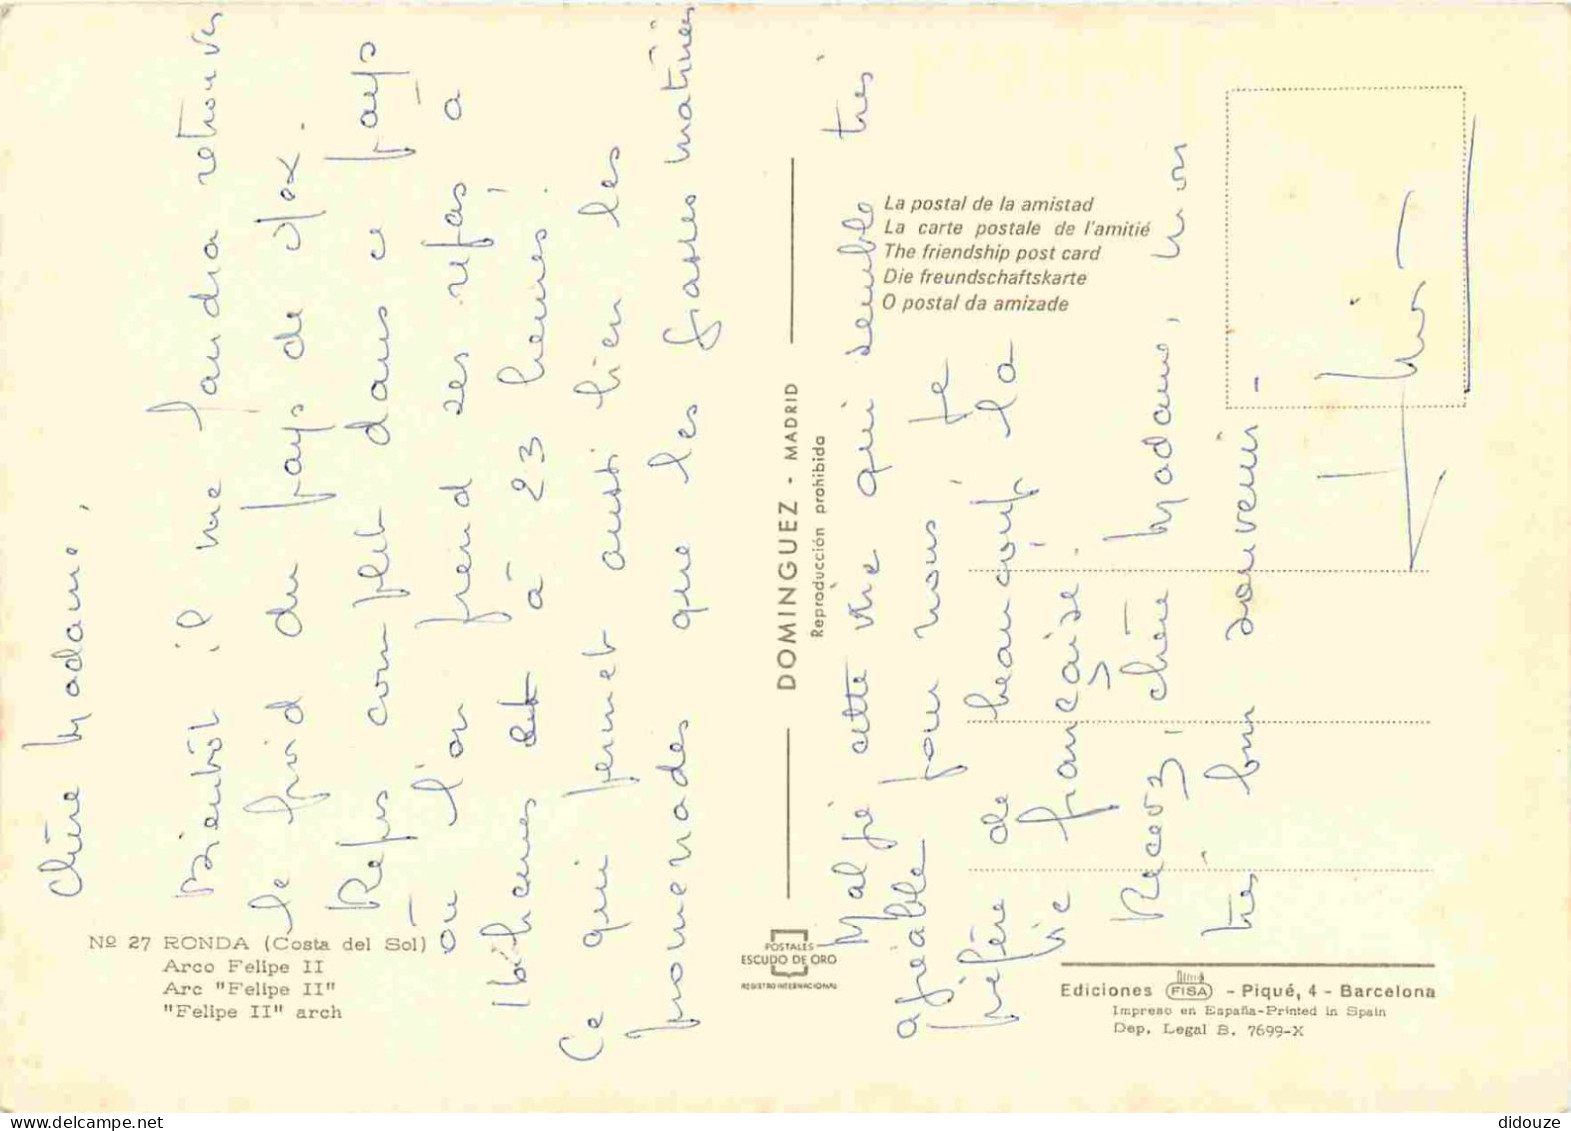 Chère Madame,
Bientôt il me faudra retrouver
le froid du pays de
Repos complet dans ce pays
où l'on prend ses repas à
16 heures et à 23 heures.
Ce qui permet aussi bien les
promenades que les grasses matinées
Malgré cette vie qui semble très
agréable pour nous je
préfère de beaucoup la
vie française.
Recevez, chère Madame, mon
très bon souvenir -
Nº 27 RONDA (Costa del Sol)
Arco Felipe II
Arc "Felipe II"
"Felipe II" arch
DOMINGUEZ - MADRID
Reproducción prohibida
POSTALES
ESCUDO DE ORO
REGISTRO INTERNACIONAL
La postal de la amistad
La carte postale de l'amitié
The friendship post card
Die freundschaftskarte
O postal da amizade
Ediciones FISA - Piqué, 4 - Barcelona
Impreso en España-Printed in Spain
Dep. Legal B. 7699-X
didouze